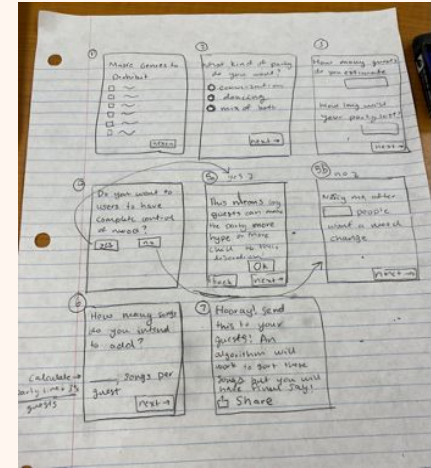 ①
Music Genres to
Prohibit
next→
②
What kind of party
do you want?
conversation
dancing
mix of both
next→
③
How many guests
do you estimate
How long will
your party last?
next→
④
Do you want to
users to have
complete control
of music?
yes
no
⑤
yes?
This means
guests can make
the party more
hype or more
chill at their
discretion
Ok
back
next→
5b
no?
Notify me after
people
want a mood
change
next→
⑥
How many songs
do you intend
to add?
songs per
guest
next→
Calculate→
guests
⑦
Hooray! Send
this to your
guests! An
algorithm will
work to sort these
songs but you will
have final say!
Share